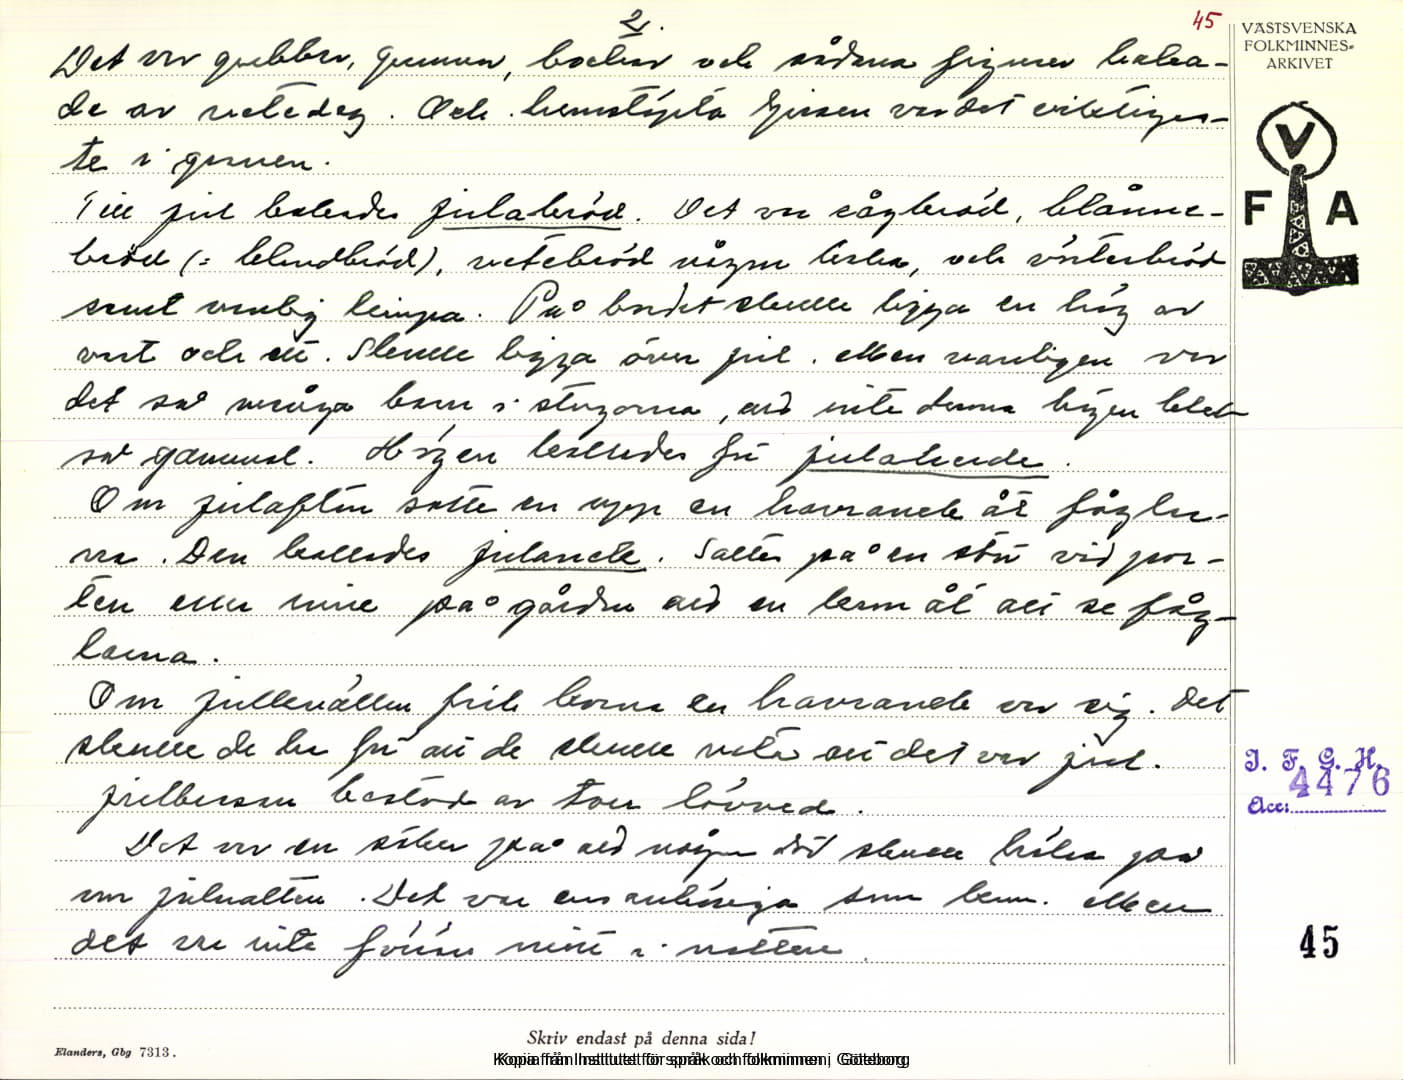 2.
45
VÄSTSVENSKA
FOLKMINNES-
ARKIVET
V
F A
Det var gubbar, gummor, bockar och sådana figurer baka-
de av vetedeg. Och hemstöpta ljusen var det viktigas-
te i granen.
Till jul bakades julabröd. Det var sågbröd, blånne-
bröd (: blindbröd), vetebröd några kakor, och vörtebröd
samt vanlig limpa. På bordet skulle ligga en hög av
vart och ett. Skulle ligga över jul. Men vanligen var
det så många barn i stugorna, att inte denna högen blev
så gammal. Högen kallades för julahög.
Om julafton satte en upp en havranek åt fågla-
rna. Den kallades julanek. Sattes på en stör vid por-
ten eller mitt på gården att en kom åt att se fåg-
larna.
Om julkvällen fick korna en havranek var sig. Det
skulle de ha för att de skulle veta att det var jul.
Julbrasan bestod av torr lövved.
Det var en säker på att någon död skulle hälsa på
om julnatten. Det var ens anhöriga som kom. Men
det var inte förrän mitt i natten.
I. F. G. H.
4476
Acc:
45
Skriv endast på denna sida!
Elanders, Gbg 7313.
Kopia från Institutet för språk och folkminnen i Göteborg